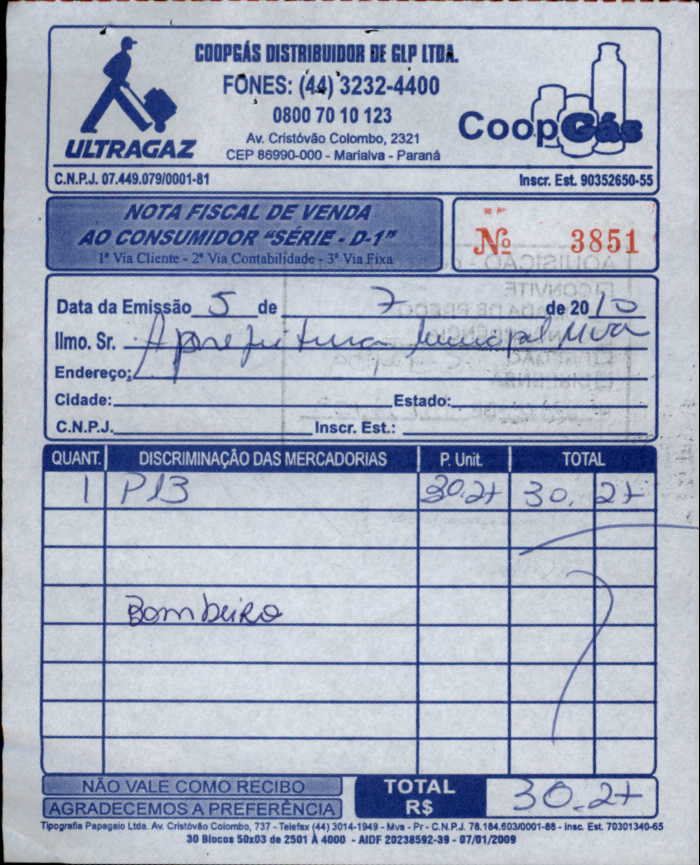 COOPGÁS DISTRIBUIDOR DE GLP LTDA.
FONES: (44) 3232-4400
0800 70 10 123
Av. Cristóvão Colombo, 2321
CEP 86990-000 - Marialva - Paraná
ULTRAGAZ
CoopGás
C.N.P.J. 07.449.079/0001-81
Inscr. Est. 90352650-55
NOTA FISCAL DE VENDA
AO CONSUMIDOR "SÉRIE - D-1"
1ª Via Cliente - 2ª Via Contabilidade - 3ª Via Fixa
Nº 3851
Data da Emissão 5 de 7 de 2010
Ilmo. Sr. A prefeitura municipal Mva
Endereço:
Cidade: Estado:
C.N.P.J. Inscr. Est.:
QUANT. DISCRIMINAÇÃO DAS MERCADORIAS P. Unit. TOTAL
1 P13 30.27 30.27
Bombeiro
NÃO VALE COMO RECIBO
AGRADECEMOS A PREFERÊNCIA
TOTAL R$ 30.27
Tipografia Papagaio Ltda. Av. Cristóvão Colombo, 737 - Telefax (44) 3014-1949 - Mva - Pr - C.N.P.J. 78.184.603/0001-88 - Insc. Est. 70301340-65
30 Blocos 50x03 de 2501 À 4000 - AIDF 20238592-39 - 07/01/2009